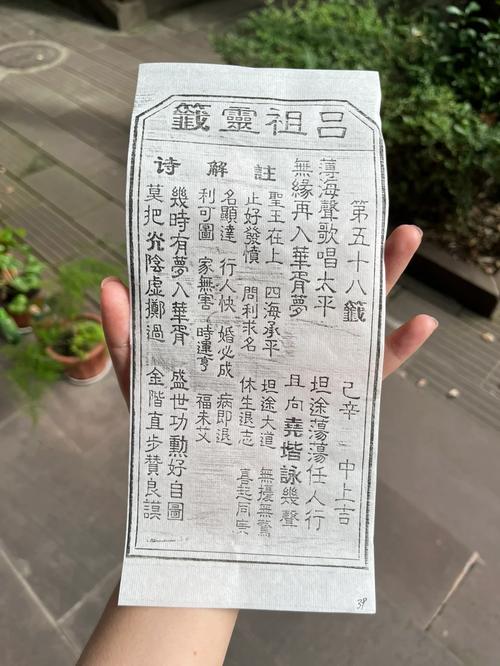 呂祖靈籤
第五十八籤 己辛 中上吉
薄海聲歌唱太平 坦途蕩蕩任人行
無緣再入華胥夢 且向堯堦詠幾聲
註解诗
聖王在上 四海承平 坦途大道 無擾無驚
止好發憤 問利求名 休生退志 喜起同
名顯達 行人快 婚必成 病即退
利可圖 家無害 時運亨 福未艾
幾時有夢入華胥 盛世功勲好自圖
莫把光陰虛擲過 金階直步贊良謨